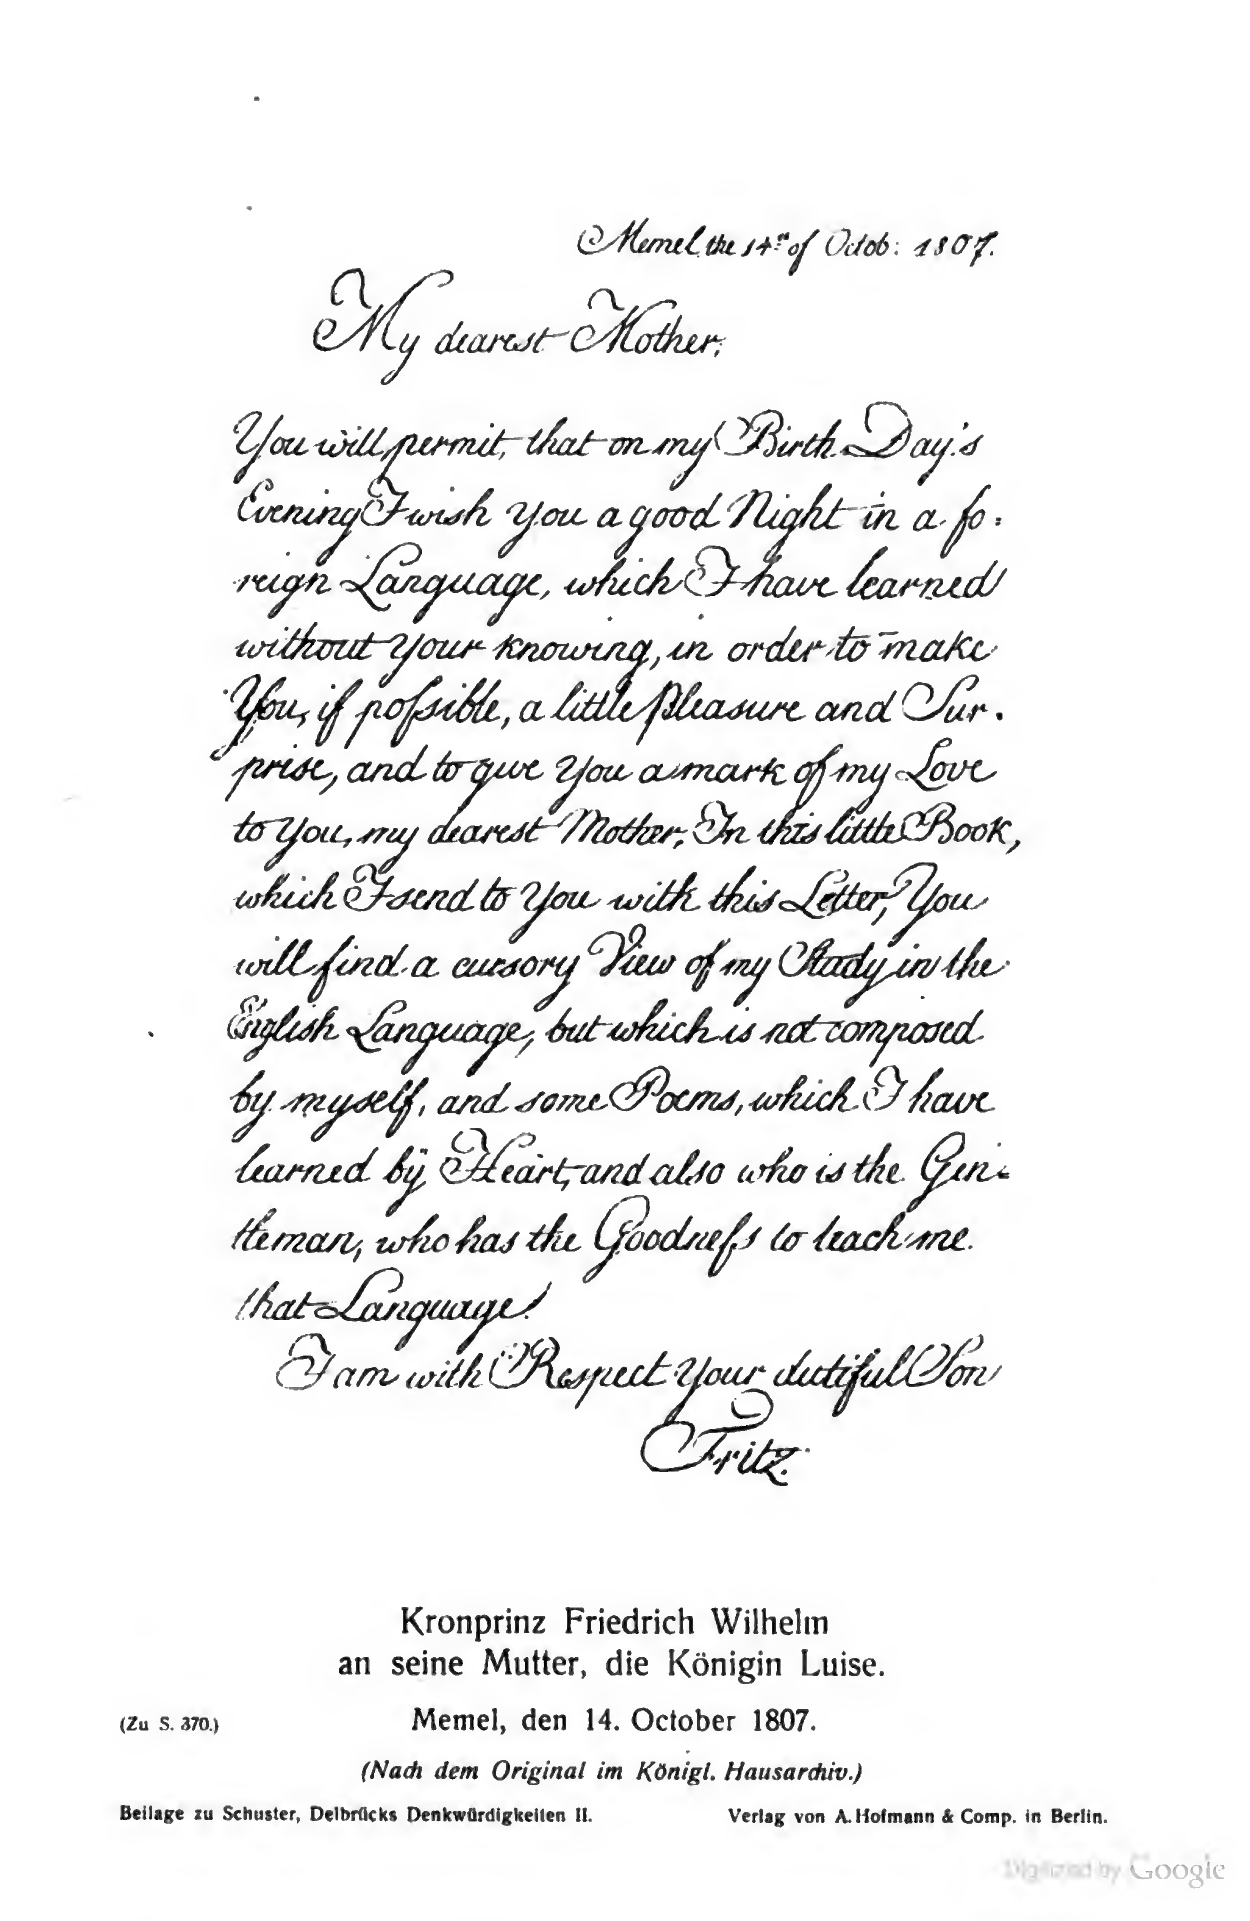 Memel, the 14th of Octob: 1807.
My dearest Mother,
You will permit, that on my Birth Day's
Evening I wish You a good Night in a fo:
reign Language, which I have learned
without Your knowing, in order to make
You, if poſsible, a little Pleasure and Sur:
prise, and to give You a mark of my Love
to You, my dearest Mother, In this little Book,
which I send to You with this Letter, You
will find a cursory View of my Study in the
English Language, but which is not composed
by myself, and some Poems, which I have
learned by Heart, and also who is the Gen:
tleman, who has the Goodneſs to teach me
that Language!
I am with Respect Your dutiful Son
Fritz.
Kronprinz Friedrich Wilhelm
an seine Mutter, die Königin Luise.
(Zu S. 370.) Memel, den 14. October 1807.
(Nach dem Original im Königl. Hausarchiv.)
Beilage zu Schuster, Delbrücks Denkwürdigkeiten II. Verlag von A. Hofmann & Comp. in Berlin.
Digitized by Google